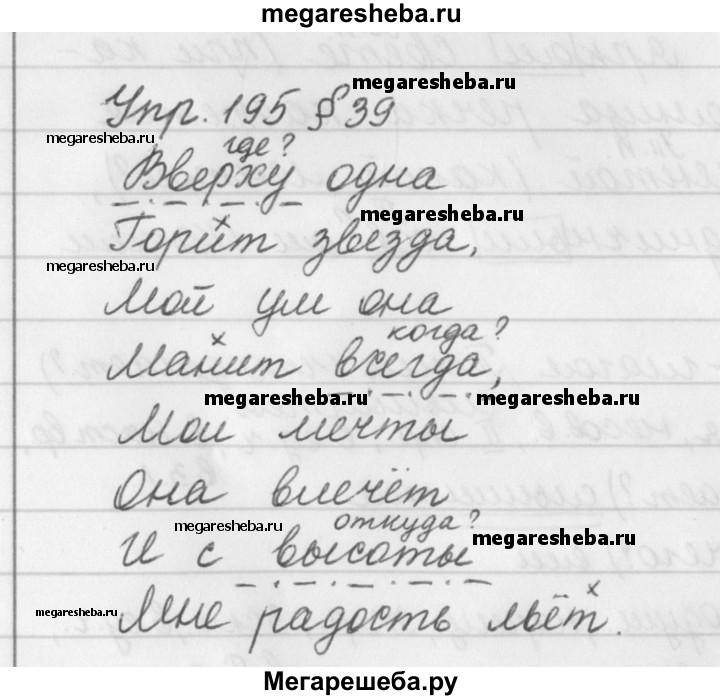 megaresheba.ru
megaresheba.ru
Упр. 195 § 39
megaresheba.ru
где?
Вверху одна
megaresheba.ru
Горит звезда,
megaresheba.ru
Мой ум она
когда?
Манит всегда,
megaresheba.ru megaresheba.ru
Мои мечты
Она влечёт
откуда?
megaresheba.ru
И с высоты
megaresheba.ru
megaresheba.ru
Мне радость льёт.
Мегарешеба.ру